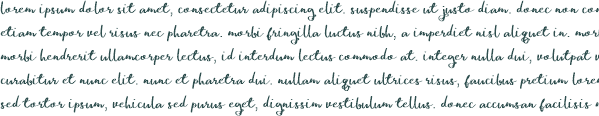 lorem ipsum dolor sit amet, consectetur adipiscing elit. suspendisse ut justo diam. donec non con
etiam tempor vel risus nec pharetra diam. morbi fringilla luctus nibh, a imperdiet nisl aliquet in. mor
morbi hendrerit ullamcorper lectus, id interdum lectus commodo at. integer nulla dui, volutpat v
curabitur et nunc elit. nunc et pharetra dui. nullam aliquet ultrices risus, faucibus pretium lorem
sed tortor ipsum, vehicula sed purus eget, dignissim vestibulum tellus. donec accumsan facilisis